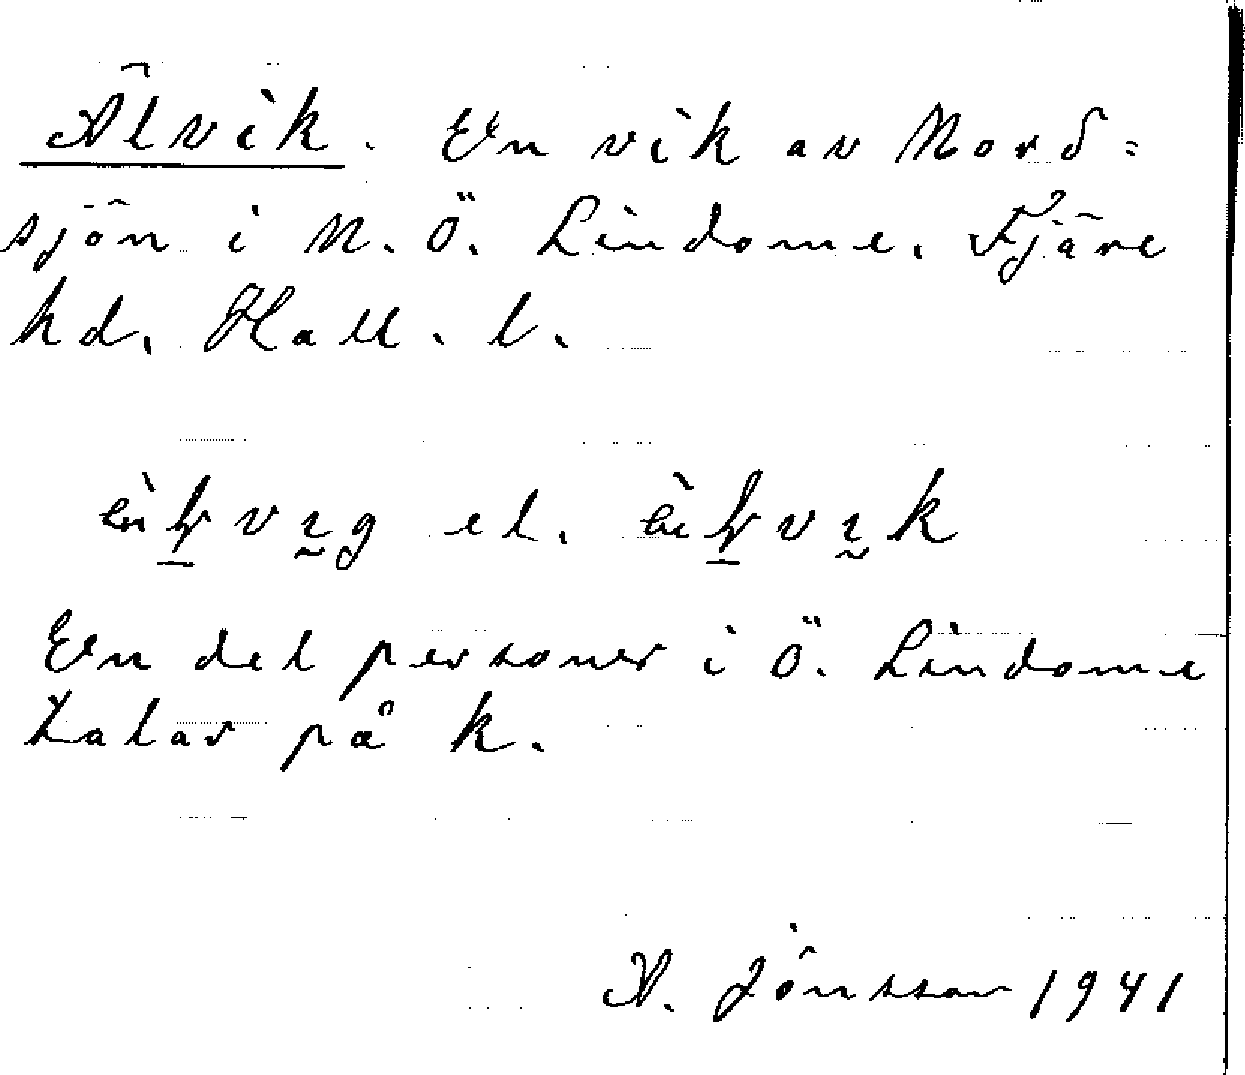 Älvik. En vik av Nord-
sjön i N. Ö. Lindome. Fjäre
hd. Hall. l.
el.
En del personer i Ö. Lindome
talar på k.
A. Jönsson 1941